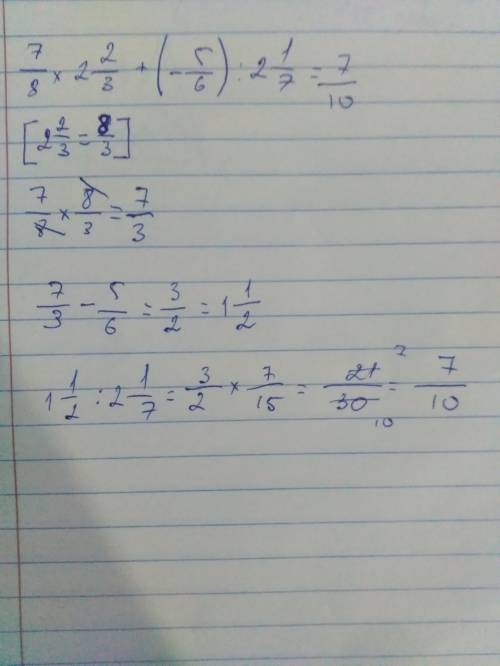 7/8 × 2 2/3 + (-5/6) : 2 1/7 = 7/10
[2 2/3 = 8/3]
7/8 × 8/3 = 7/3
7/3 - 5/6 = 3/2 = 1 1/2
1 1/2 : 2 1/7 = 3/2 × 7/15 = 21/30 = 7/10
7
10